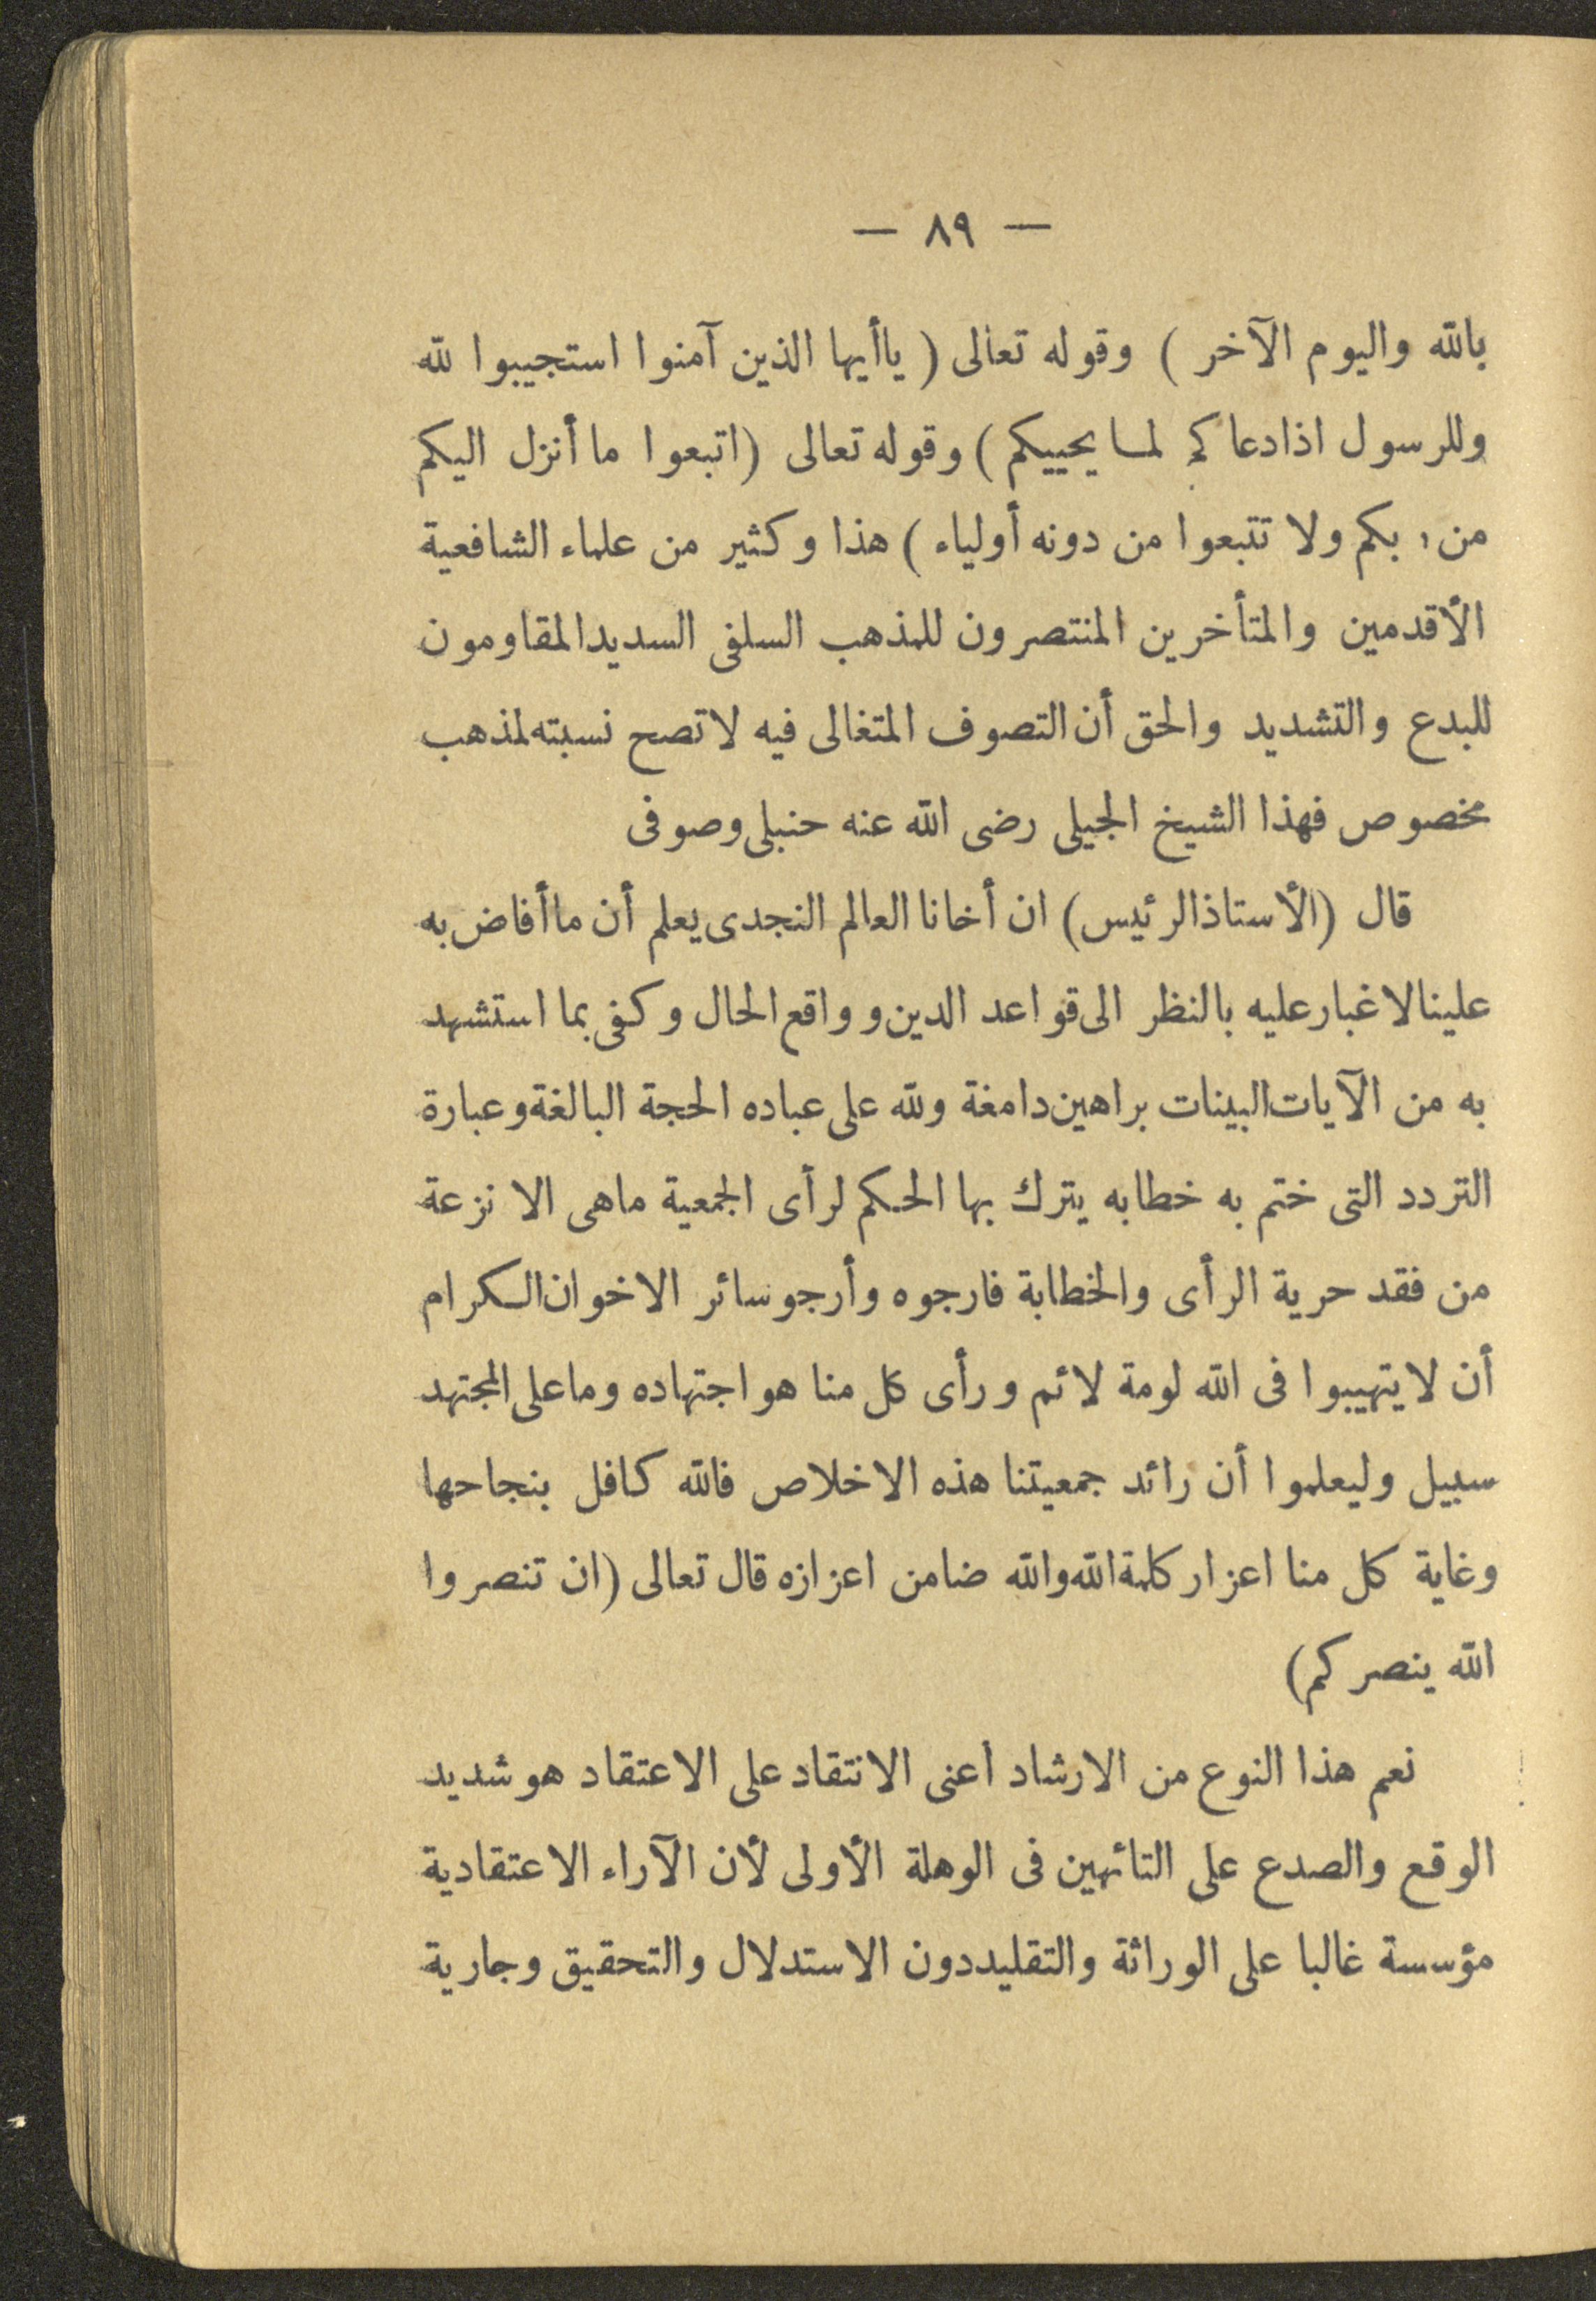 — ٨٩ —
بالله واليوم الآخر ) وقوله تعالى ( ياأيها الذين آمنوا استجيبوا لله
وللرسول اذا دعاكم لما يحييكم ) وقوله تعالى (اتبعوا ما أنزل اليكم
من ربكم ولا تتبعوا من دونه أولياء ) هذا وكثير من علماء الشافعية
الأقدمين والمتأخرين المنتصرون للمذهب السلفى السديد المقاومون
للبدع والتشديد والحق أن التصوف المتغالى فيه لا تصح نسبته لمذهب
مخصوص فهذا الشيخ الجيلى رضى الله عنه حنبلى وصوفى
قال (الأستاذ الرئيس) ان أخانا العالم النجدى يعلم أن ما أفاض به
علينا لا غبار عليه بالنظر الى قواعد الدين وواقع الحال وكفى بما استشهد
به من الآيات البينات براهين دامغة ولله على عباده الحجة البالغة وعبارة
التردد التى ختم به خطابه يترك بها الحكم لرأى الجمعية ماهى الا نزعة
من فقد حرية الرأى والخطابة فارجوه وأرجو سائر الاخوان الكرام
أن لا يتهيبوا فى الله لومة لائم ورأى كل منا هو اجتهاده وما على المجتهد
سبيل وليعلموا أن رائد جمعيتنا هذه الاخلاص فالله كافل بنجاحها
وغاية كل منا اعزار كلمة الله والله ضامن اعزازه قال تعالى (ان تنصروا
الله ينصركم)
نعم هذا النوع من الارشاد أعنى الانتقاد على الاعتقاد هو شديد
الوقع والصدع على التائهين فى الوهلة الأولى لأن الآراء الاعتقادية
مؤسسة غالبا على الوراثة والتقليد دون الاستدلال والتحقيق وجارية